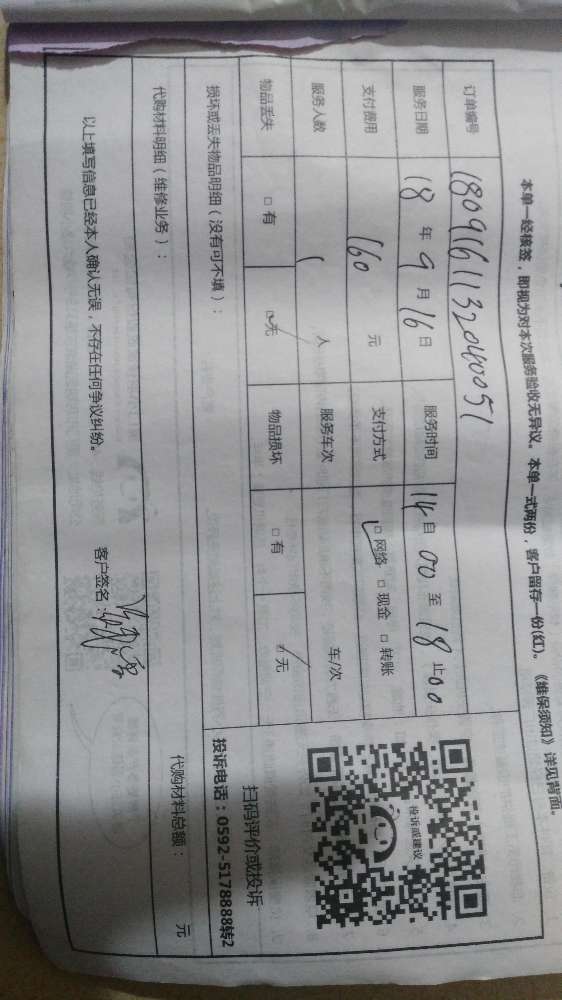 本单一经核签，即视为对本次服务验收无异议。本单一式两份，客户留存一份(红)。《维保须知》详见背面。
订单编号 1809161132040051
服务日期 18 年 9 月 16 日 服务时间 14 自 00 至 18 止 00
支付费用 160 元 支付方式 □网络 □现金 □转账
服务人数 1 人 服务车次 车/次
物品丢失 □有 □无 物品损坏 □有 □无
损坏或丢失物品明细（没有可不填）：
投诉或建议
扫码评价或投诉
投诉电话：0592-5178888转2
代购材料明细（维修业务）： 代购材料总额： 元
以上填写信息已经本人确认无误，不存在任何争议纠纷。 客户签名：